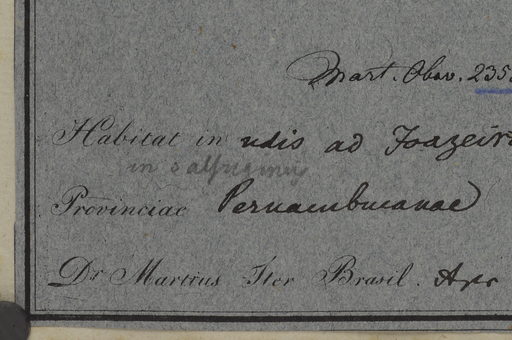 Mart. Obsv. 235
Habitat in udis ad Joazeiro
in salsuginis
Provinciae Pernambucanae
Dr. Martius Iter Brasil. Apr